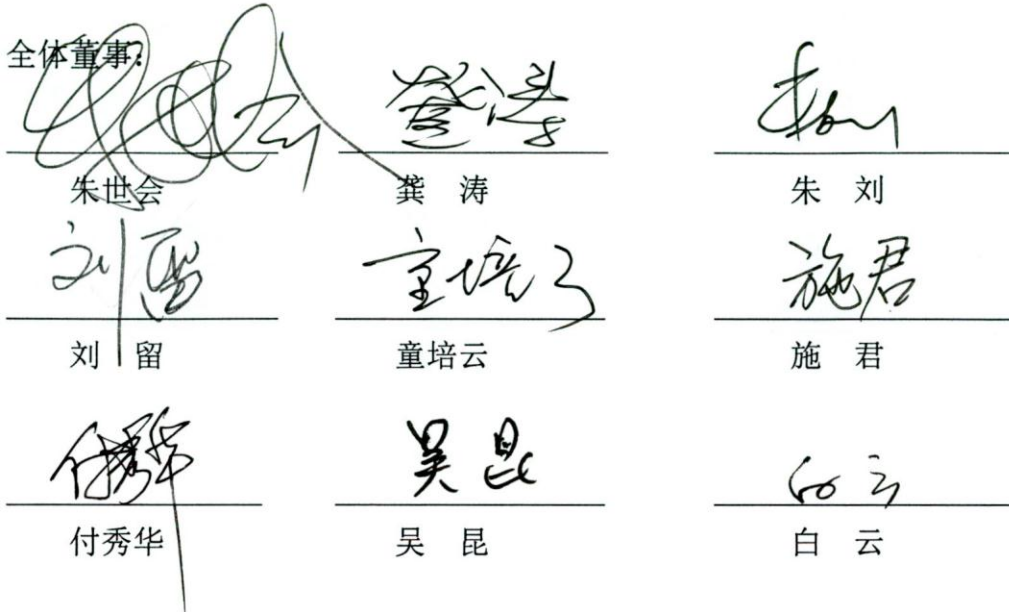 全体董事：
朱世会 龚 涛 朱 刘
刘留 童培云 施君
刘 留 童培云 施 君
付秀华 吴昆 白云
付秀华 吴 昆 白 云